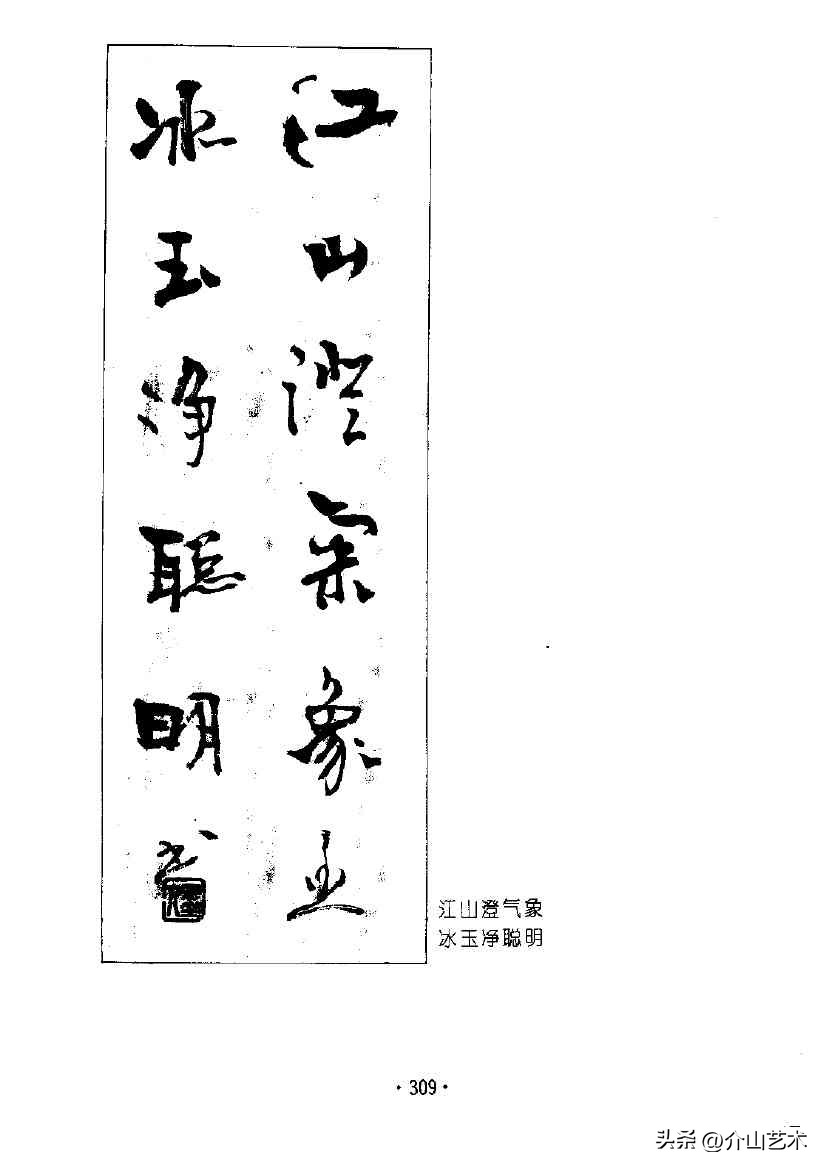 江山澄氣象
冰玉浄聰明
江山澄气象
冰玉净聪明
·309·
头条 @介山艺术